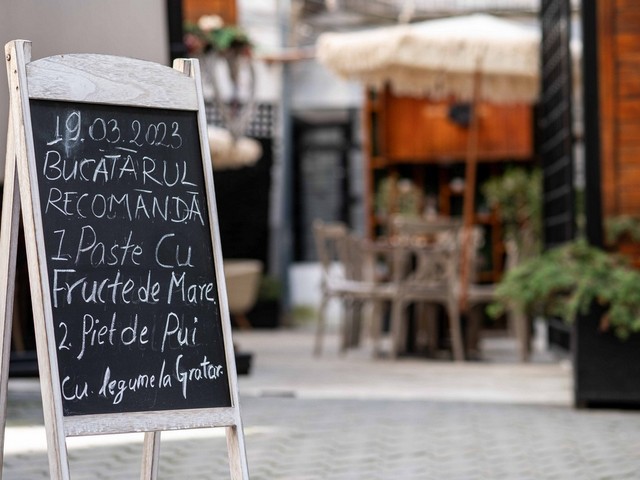 19.03.2023
BUCĂTARUL
RECOMANDĂ
1. Paste Cu
Fructe de Mare.
2. Piet de Pui
cu legume la Gratar.